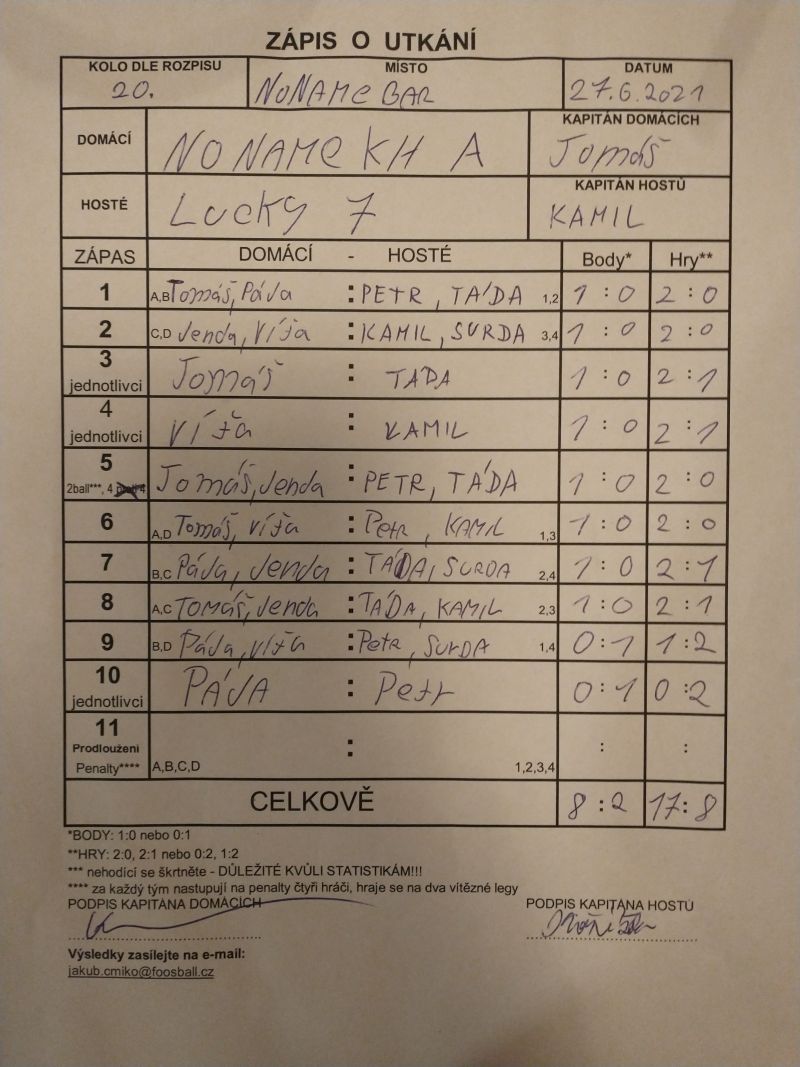 ZÁPIS O UTKÁNÍ
KOLO DLE ROZPISU MÍSTO DATUM
20. NONAME BAR 27.6.2021
DOMÁCÍ NO NAME KH A KAPITÁN DOMÁCÍCH
Tomáš
HOSTÉ Lucky 7 KAPITÁN HOSTŮ
KAMIL
ZÁPAS DOMÁCÍ - HOSTÉ Body* Hry**
1 A,B Tomáš, Páva : PETR, TÁĎA 1,2 1 : 0 2 : 0
2 C,D Jenda, Víťa : KAMIL, SURDA 3,4 1 : 0 2 : 0
3 jednotlivci Tomáš : TAĎA 1 : 0 2 : 1
4 jednotlivci Víťa : KAMIL 1 : 0 2 : 1
5 2ball***, 4 Tomáš, Jenda : PETR, TÁĎA 1 : 0 2 : 0
6 A,D Tomáš, Víťa : Petr, KAMIL 1,3 1 : 0 2 : 0
7 B,C Páva, Jenda : TÁĎA, SURDA 2,4 1 : 0 2 : 1
8 A,C TOMÁŠ, Jenda : TÁĎA, KAMIL 2,3 1 : 0 2 : 1
9 B,D Páva, Víťa : Petr, SURDA 1,4 0 : 1 1 : 2
10 jednotlivci PÁVA : Petr 0 : 1 0 : 2
11
Prodloužení : : :
Penalty**** A,B,C,D 1,2,3,4
CELKOVĚ 8 : 2 17 : 8
*BODY: 1:0 nebo 0:1
**HRY: 2:0, 2:1 nebo 0:2, 1:2
*** nehodící se škrtněte - DŮLEŽITÉ KVŮLI STATISTIKÁM!!!
**** za každý tým nastupují na penalty čtyři hráči, hraje se na dva vítězné legy
PODPIS KAPITÁNA DOMÁCÍCH PODPIS KAPITÁNA HOSTŮ
Výsledky zasílejte na e-mail:
jakub.cmiko@foosball.cz